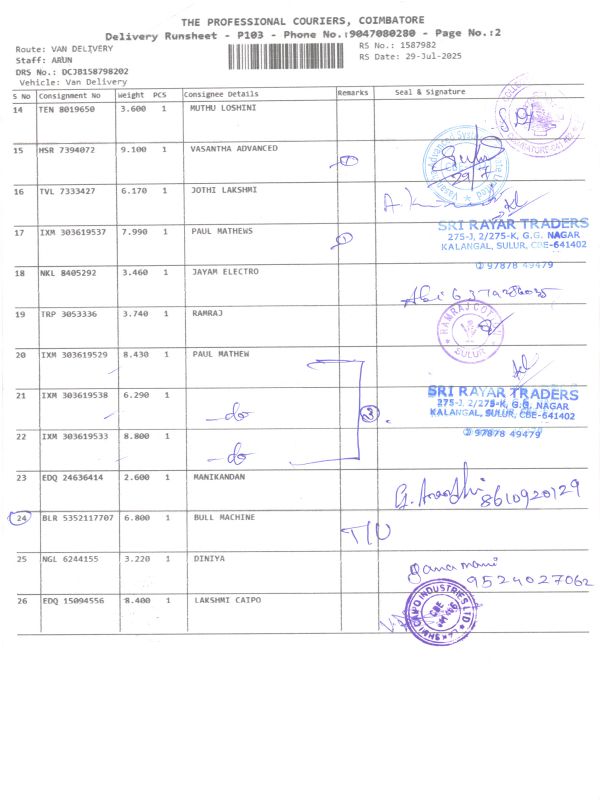 THE PROFESSIONAL COURIERS, COIMBATORE
Delivery Runsheet - P103 - Phone No.:9047080280 - Page No.:2
Route: VAN DELIVERY
RS No.: 1587982
Staff: ARUN
RS Date: 29-Jul-2025
DRS No.: DCJB158798202
Vehicle: Van Delivery
S No Consignment No Weight PCS Consignee Details Remarks Seal & Signature
14 TEN 8019650 3.600 1 MUTHU LOSHINI
15 HSR 7394072 9.100 1 VASANTHA ADVANCED 1
29/7
16 TVL 7333427 6.170 1 JOTHI LAKSHMI
17 IXM 303619537 7.990 1 PAUL MATHEWS 1
SRI RAYAR TRADERS
275-J, 2/275-K, G.G. NAGAR
KALANGAL, SULUR, CBE-641402
✆ 97878 49479
18 NKL 8405292 3.460 1 JAYAM ELECTRO
19 TRP 3053336 3.740 1 RAMRAJ
SULUR
20 IXM 303619529 8.430 1 PAUL MATHEW
21 IXM 303619538 6.290 1 -do- 3
SRI RAYAR TRADERS
275-J, 2/275-K, G.G. NAGAR
KALANGAL, SULUR, CBE-641402
✆ 97878 49479
22 IXM 303619533 8.800 1 -do-
23 EDQ 24636414 2.600 1 MANIKANDAN
8610920129
24 BLR 5352117707 6.800 1 BULL MACHINE
25 NGL 6244155 3.220 1 DINIYA
9524027062
26 EDQ 15094556 8.400 1 LAKSHMI CAIPO